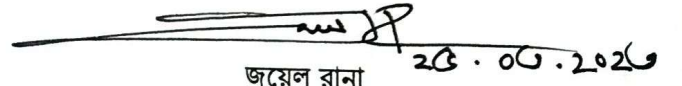 ২৫.০৩.২০২৩
জুয়েল রানা